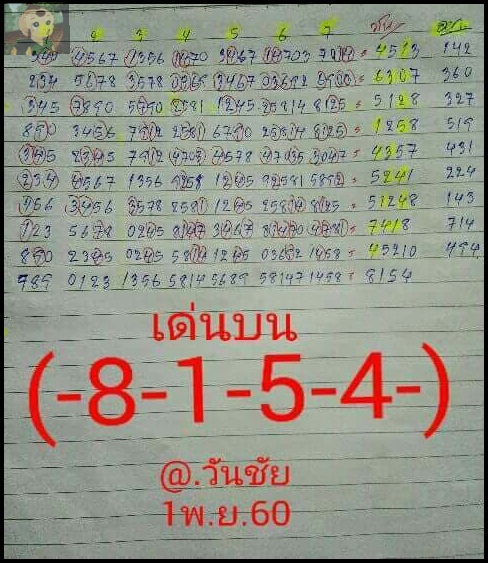 2 3 4 5 6 7
345 4567 1356 3467 = 4513 142
234 5678 3578 0369 3467 03692 = 6307 360
345 7890 5790 2581 1245 25814 8125 = 5128 327
890 3456 7912 2581 6790 25814 8125 = 1258 519
345 2345 7912 4703 4578 47035 3047 = 4357 431
234 4567 1356 9258 1245 92581 5892 = 5241 224
456 3456 3578 2581 1245 25814 8125 = 51248 143
123 5678 0245 8147 3467 81470 4781 = 7418 714
890 2345 0245 5814 1245 03692 1458 = 45210 494
789 0123 1356 5814 5689 58147 1458 = 8154
เด่นบน
(-8-1-5-4-)
@.วันชัย
1พ.ย.60